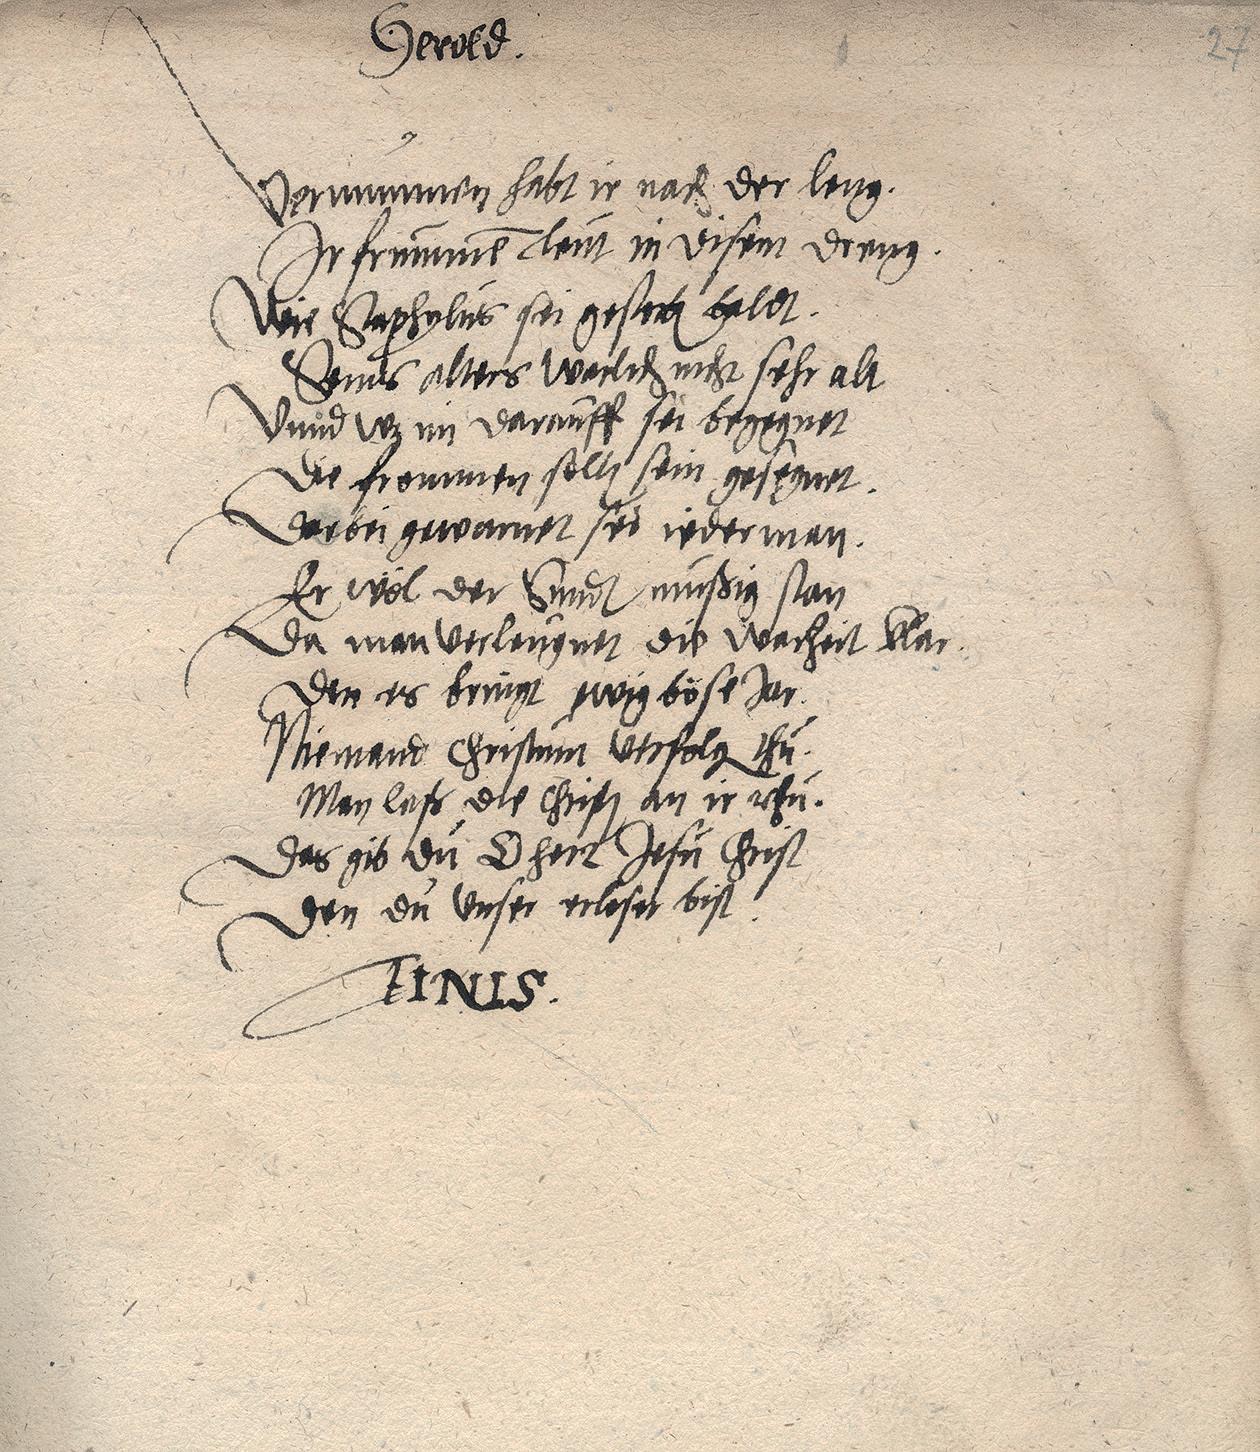 27
Herold.
Vernummen habt ir nach der leng.
Ir frummē leut in disem dreng.
Wie Staphylus sei gestorbē baldt.
Seins alters warlich nicht sehr alt
Vnnd wz im darauff sei begegnet
Die frommen sollē sein gesegnet.
Darbei gewarnet sei iederman.
Er wöl der Sündt müßig stan
Da man verleugnet die warheit klar.
Den es bringt ewig böse Jar.
Niemand Christum verfolgē thu.
Man laß die Christē an ir rhu.
Das gib du O herr Jesu Christ
Den du vnser erlöser bist.
FINIS.